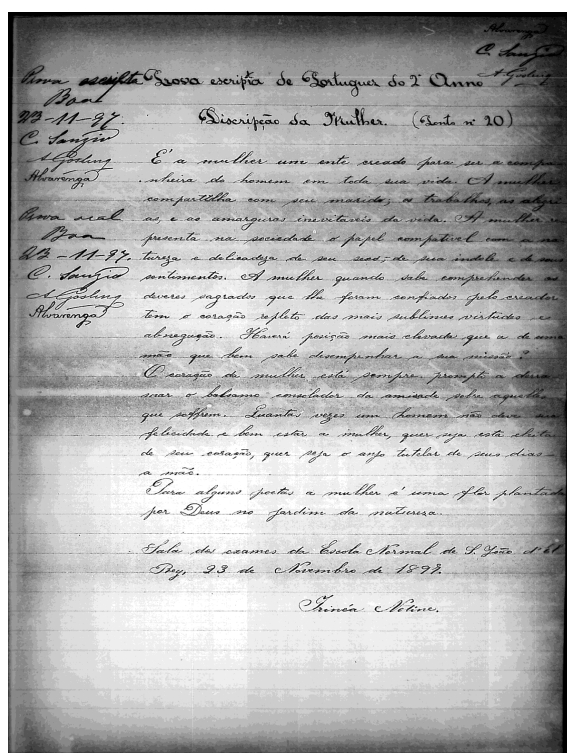 Alvarenga
C. Sanzio
A Gosling
Prova escripta de Portuguez do 2º Anno
Discripção da Mulher. (Ponto nº 20)
Prova escripta
Boa
23-11-97.
C. Sanzio
A Gosling
Alvarenga
Prova oral
Boa
23-11-97.
C. Sanzio
A Gosling
Alvarenga
É a mulher um ente creado para ser a compa
nheira do homem em toda sua vida. A mulher
compartilha com seu marido, os trabalhos, as alegri
as, e as amarguras inevitaveis da vida. A mulher re
presenta na sociedade o papel compativel com a na
tureza e delicadeza de seu sexo, de sua indole e de seus
sentimentos. A mulher quando sabe comprehender os
deveres sagrados que lhe foram confiados pelo creador
tem o coração repleto das mais sublimes virtudes e
abnegação. Haverá posição mais elevada que a de uma
mãe que bem sabe desempenhar a sua missão?
O coração de mulher está sempre prompto a derra
mar o balsamo consolador da amisade sobre aquelles
que soffrem. Quantas vezes um homem não deve sua
felicidade e bem estar a mulher, quer seja esta eleita
de seu coração, quer seja o anjo tutelar de seus dias
a mãe.
Para alguns poetas a mulher é uma flor plantada
por Deus no jardim da natureza.
Sala dos exames da Escola Normal de S. João d'El
Rey, 23 de Novembro de 1897.
Irinéa Notine.